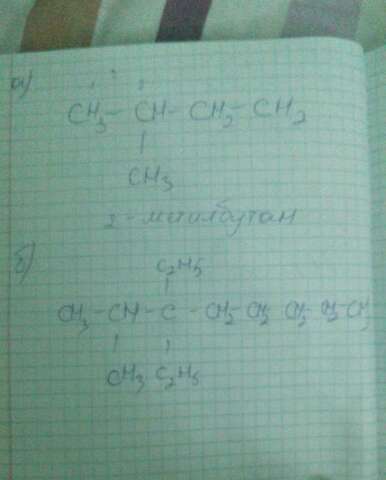 а)
CH3 - CH - CH2 - CH2
CH3
2 - метилбутан
б)
C2H5
CH3 - CH - C - CH2 - CH2 CH2 - CH2 - CH
CH3 C2H5